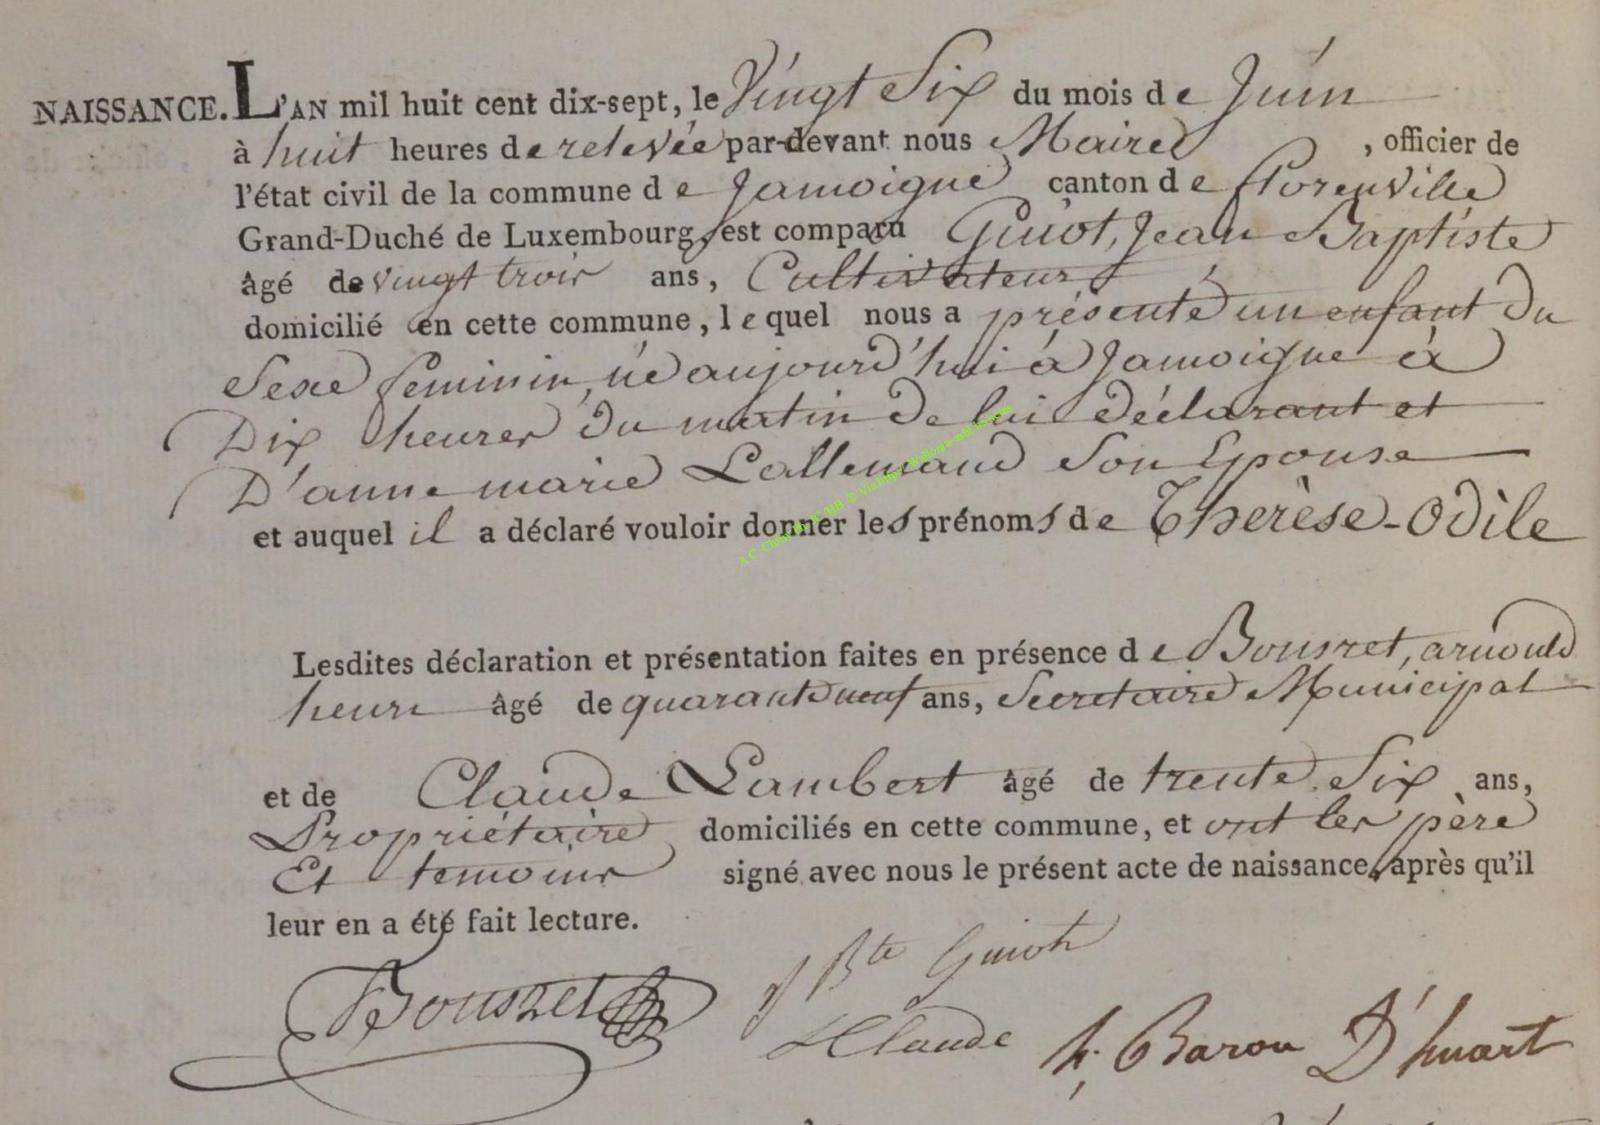 NAISSANCE. L'AN mil huit cent dix-sept, le Vingt Six du mois de Juin
à huit heures de relevée par-devant nous Maire, officier de
l'état civil de la commune de Jamoigne canton de florenville
Grand-Duché de Luxembourg, est comparu Guiot, Jean Baptiste
âgé de vingt trois ans, Cultivateur
domicilié en cette commune, lequel nous a présenté un enfant du
Sexe feminin, né aujourd'hui à Jamoigne à
Dix heures du matin de lui déclarant et
D'anne marie Lallemand Son Epouse
et auquel il a déclaré vouloir donner les prénoms de Thérèse-Odile
Lesdites déclaration et présentation faites en présence de Bouszet, arnould
henri âgé de quarante neuf ans, Secretaire Municipal
et de Claude Lambert âgé de trente Six ans,
Propriétaire domiciliés en cette commune, et ont les père
Et temoins signé avec nous le présent acte de naissance, après qu'il
leur en a été fait lecture.
Bouszet
J Bte Guiot
L Claude
h. Baron D'huart